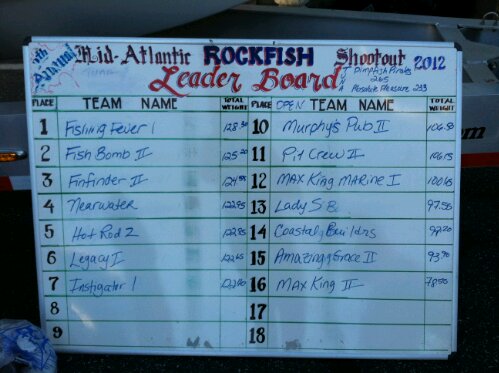 Annual Mid-Atlantic ROCKFISH Shootout 2012
Leader Board
Pirates
265
Absolute Pleasure 233
PLACE TEAM NAME TOTAL WEIGHT PLACE OPEN TEAM NAME TOTAL WEIGHT
1 Fishing Fever 1 128.30 10 Murphy's Pub II 106.50
2 Fish Bomb II 125.20 11 Pit Crew II 106.15
3 Finfinder II 12 MAX King MARINE I 100.65
4 Nearwater 122.95 13 Lady S.B. 97.55
5 Hot Rod 2 122.95 14 Coastal Builders
6 Legacy I 122.65 15 Amazing Grace II
7 Instigator 1 16 MAX King II 78.50
8 17
9 18